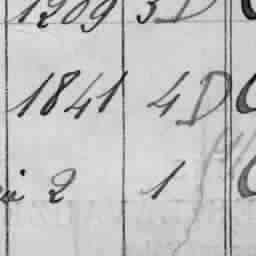 1209 3 D
1841 4 D
2 1